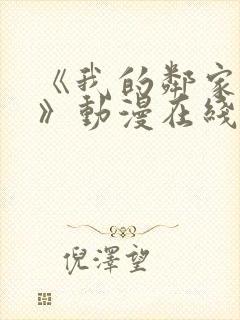 《我的鄰家
》動漫在綫
倪澤望